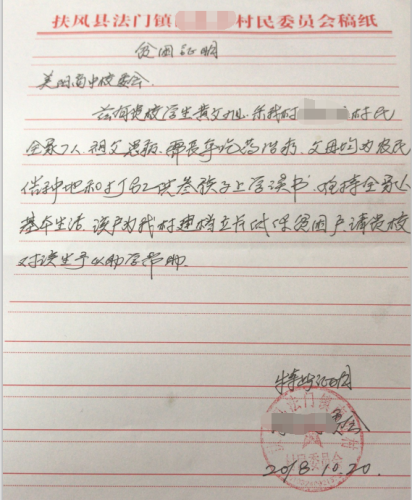 扶风县法门镇 村民委员会稿纸
贫困证明
美阳高中校委会:
兹有贵校学生黄 系我村 村民
全家7人, 祖父患病, 需长年吃药治疗, 父母均为农民
供种地和打工 孩子上学读书, 维持全家人
基本生活, 该户为我村建档立卡低保贫困户, 请贵校
对该生予以助学帮助.
特此证明
村民委员会
2018.10.20.